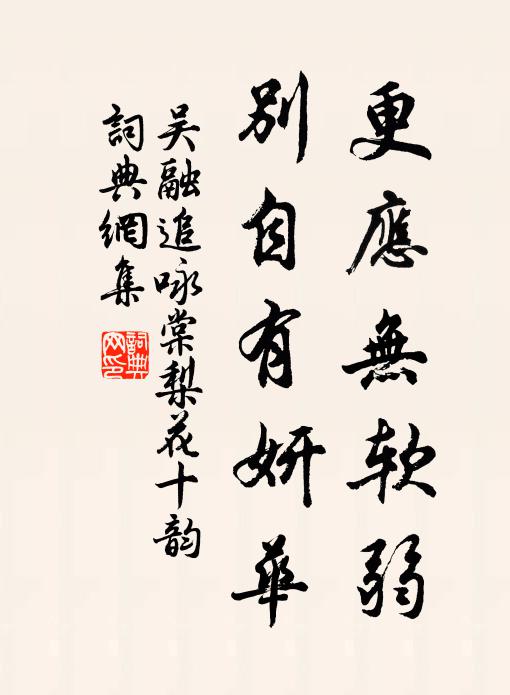 更應無軟弱
別自有妍華
吴融追咏棠梨花十韵
詞典網集
詞典網印